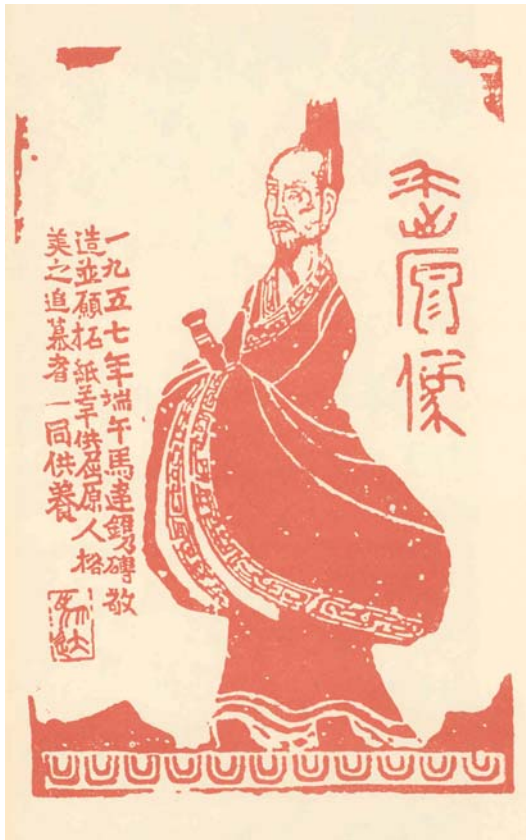 屈原像
一九五七年端午馬達鐫磚敬
造並願拓紙若干供屈原人格
美之追慕者一同供養
馬達